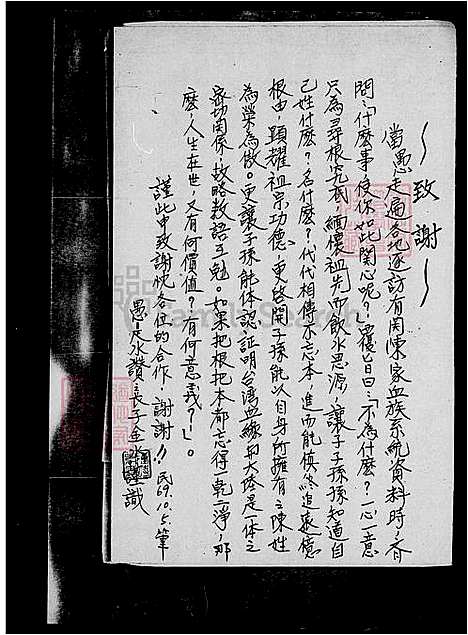 ～致謝～
當愚走遍各地逐訪有関陳家血族系統資料時,有
問:什麼事使你如此関心呢?愚覆旨曰:不為什麼?一心一意
只為尋根究底,緬懷祖先而飲水思源,讓子子孫孫知道自
己姓什麼?名什麼?代代相傳不忘本,進而能慎終追遠億
根由,顕耀祖宗功德,更啓開子孫能以自身所擁有之陳姓
為榮為傲。更讓子孫能体認,証明台湾血緣与大陸是一体之
密切関係;故略数語互勉。如果把根把本都忘得乾一淨,那
麼,人生在世,又有何價值?有何意義?」。
謹此申致謝忱各位的合作,謝謝!!民69.10.5.筆
愚是水讚長子金水謹識
FamilySearch